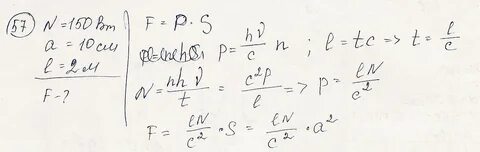 57 N = 150 Вт
a = 10 см
l = 2 м
F - ?
F = P · S
P = hν/c n ; l = tc => t = l/c
N = nhν/t = c²P/l => P = lN/c²
F = lN/c² · S = lN/c² · a²